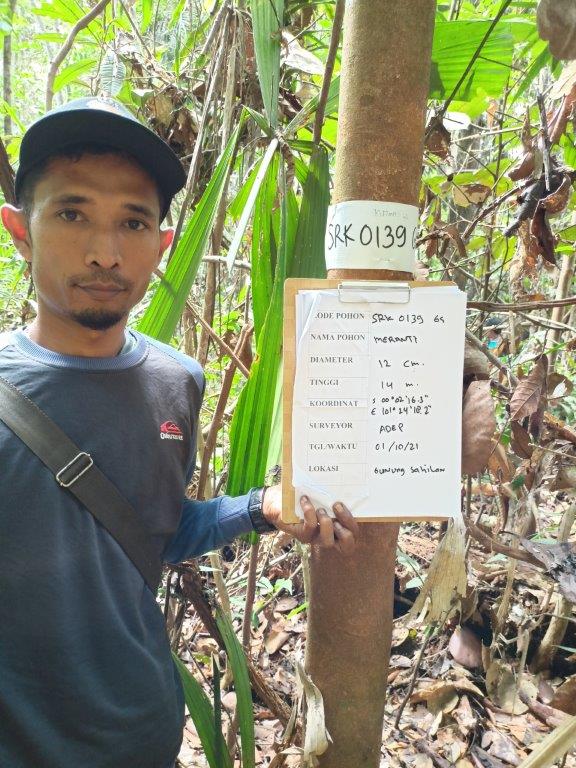 SRK 0139
KODE POHON SRK 0139 GS
NAMA POHON MERANTI
DIAMETER 12 cm.
TINGGI 14 m.
KOORDINAT S 00°02'16.3"
E 101°24'18.2"
SURVEYOR ADEP
TGL/WAKTU 01/10/21
LOKASI Gunung Sahilan